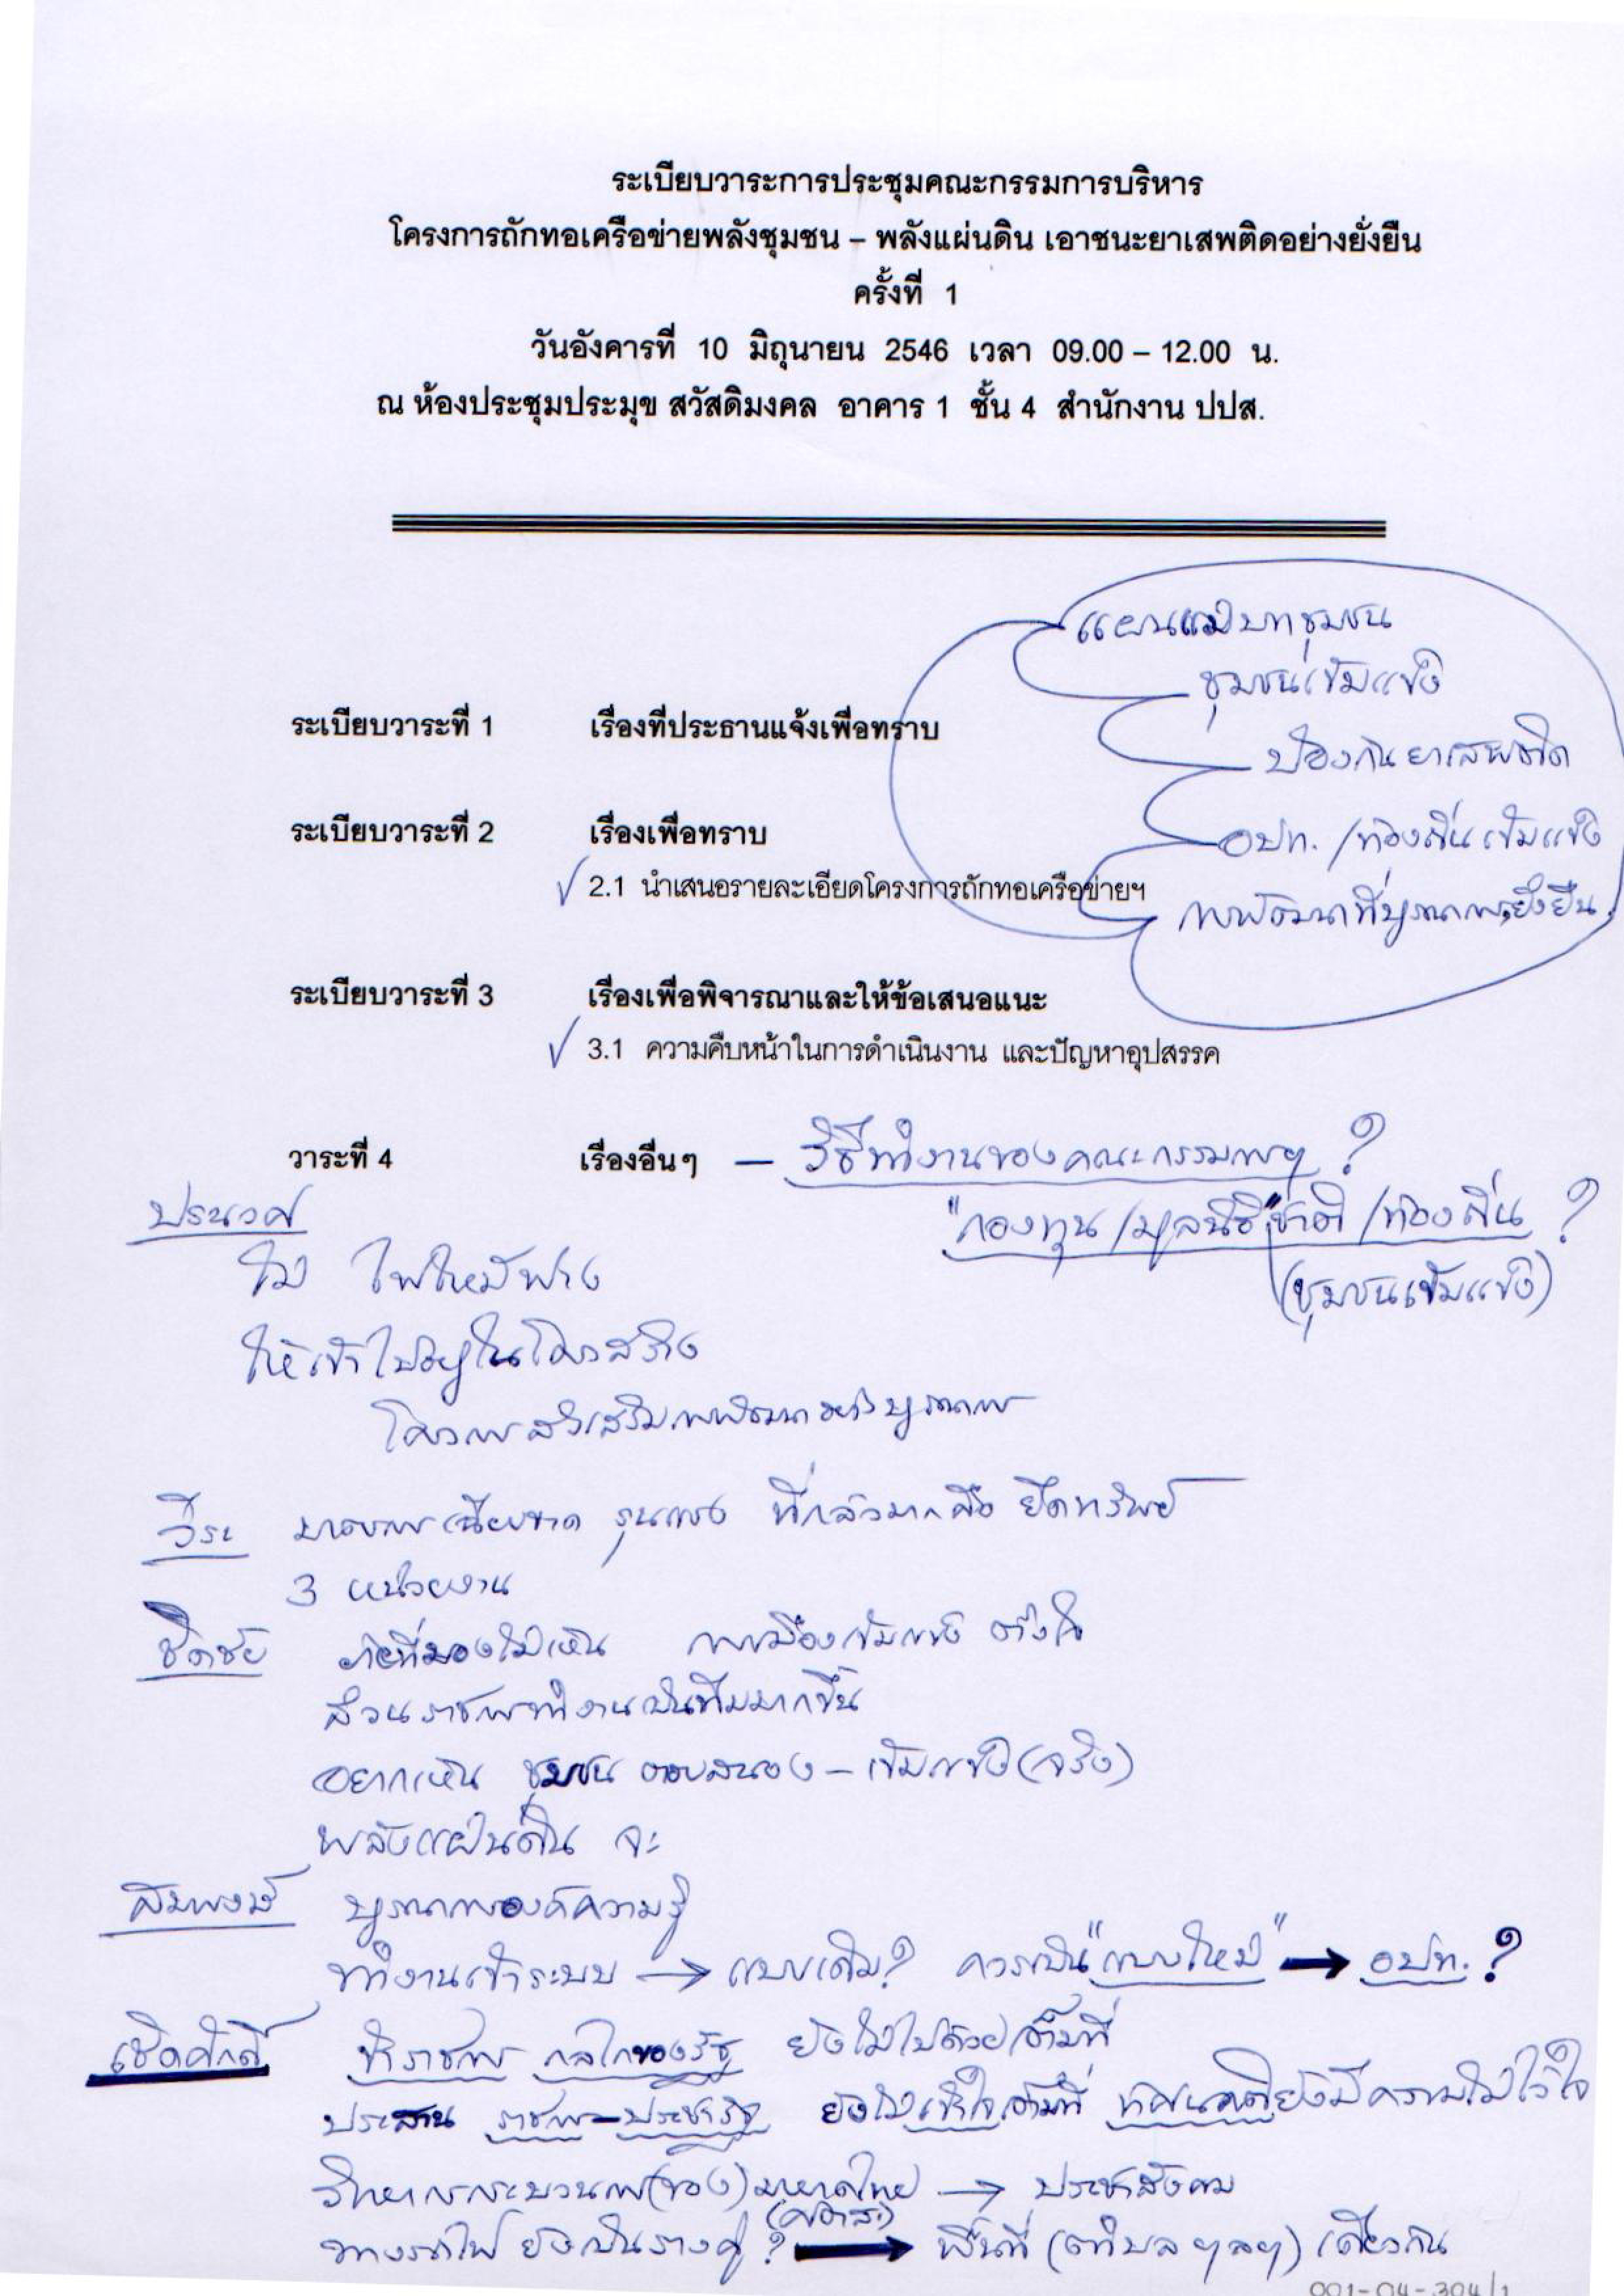 ระเบียบวาระการประชุมคณะกรรมการบริหาร
โครงการถักทอเครือข่ายพลังชุมชน – พลังแผ่นดิน เอาชนะยาเสพติดอย่างยั่งยืน
ครั้งที่ 1
วันอังคารที่ 10 มิถุนายน 2546 เวลา 09.00 – 12.00 น.
ณ ห้องประชุมประมุข สวัสดิมงคล อาคาร 1 ชั้น 4 สำนักงาน ปปส.
แผนแม่บทชุมชน
ชุมชนเข้มแข็ง
ระเบียบวาระที่ 1 เรื่องที่ประธานแจ้งเพื่อทราบ
ป้องกันยาเสพติด
ระเบียบวาระที่ 2 เรื่องเพื่อทราบ
อปท. /ท้องถิ่นเข้มแข็ง
✓ 2.1 นำเสนอรายละเอียดโครงการถักทอเครือข่ายฯ
การพัฒนาที่บูรณาการ,ยั่งยืน
ระเบียบวาระที่ 3 เรื่องเพื่อพิจารณาและให้ข้อเสนอแนะ
✓ 3.1 ความคืบหน้าในการดำเนินงาน และปัญหาอุปสรรค
วาระที่ 4 เรื่องอื่นๆ — วิธีทำงานของคณะกรรมการฯ ?
"กองทุน/มูลนิธิ"ชาติ/ท้องถิ่น ?
(ชุมชนเข้มแข็ง)
ไม่ ไฟไหม้ฟาง
ให้เข้าไปอยู่ในโครงสร้าง
โครงการส่งเสริมการพัฒนาอย่างบูรณาการ
วีระ มาตรการเฉียบขาด รุนแรง ที่กลัวมากคือ ยึดทรัพย์
3 หน่วยงาน
ชิดชัย ที่มองไม่เห็น การเมืองเข้มแข็ง ตั้งใจ
ส่วนราชการทำงานเป็นทีมมากขึ้น
อยากเห็น ชุมชน ตอบสนอง – เข้มแข็ง (จริง)
พลังแผ่นดิน จะ
สมพงษ์ บูรณาการองค์ความรู้
ทำงานเข้าระบบ → แบบเดิม? ควรเป็น "แบบใหม่" → อปท. ?
เชิดศักดิ์ ข้าราชการ กลไกของรัฐ ยังไม่ไปด้วยเต็มที่
ประสาน ราชการ–ประชารัฐ ยังไม่เข้าใจเต็มที่ ทัศนคติยังมีความไม่ไว้ใจ
กระบวนการ(ของ)มหาดไทย → ประชาสังคม
ทางรถไฟ ยังเป็นรางคู่ ? → พื้นที่ (ตำบล ฯลฯ) เดียวกัน
001-04-304/1